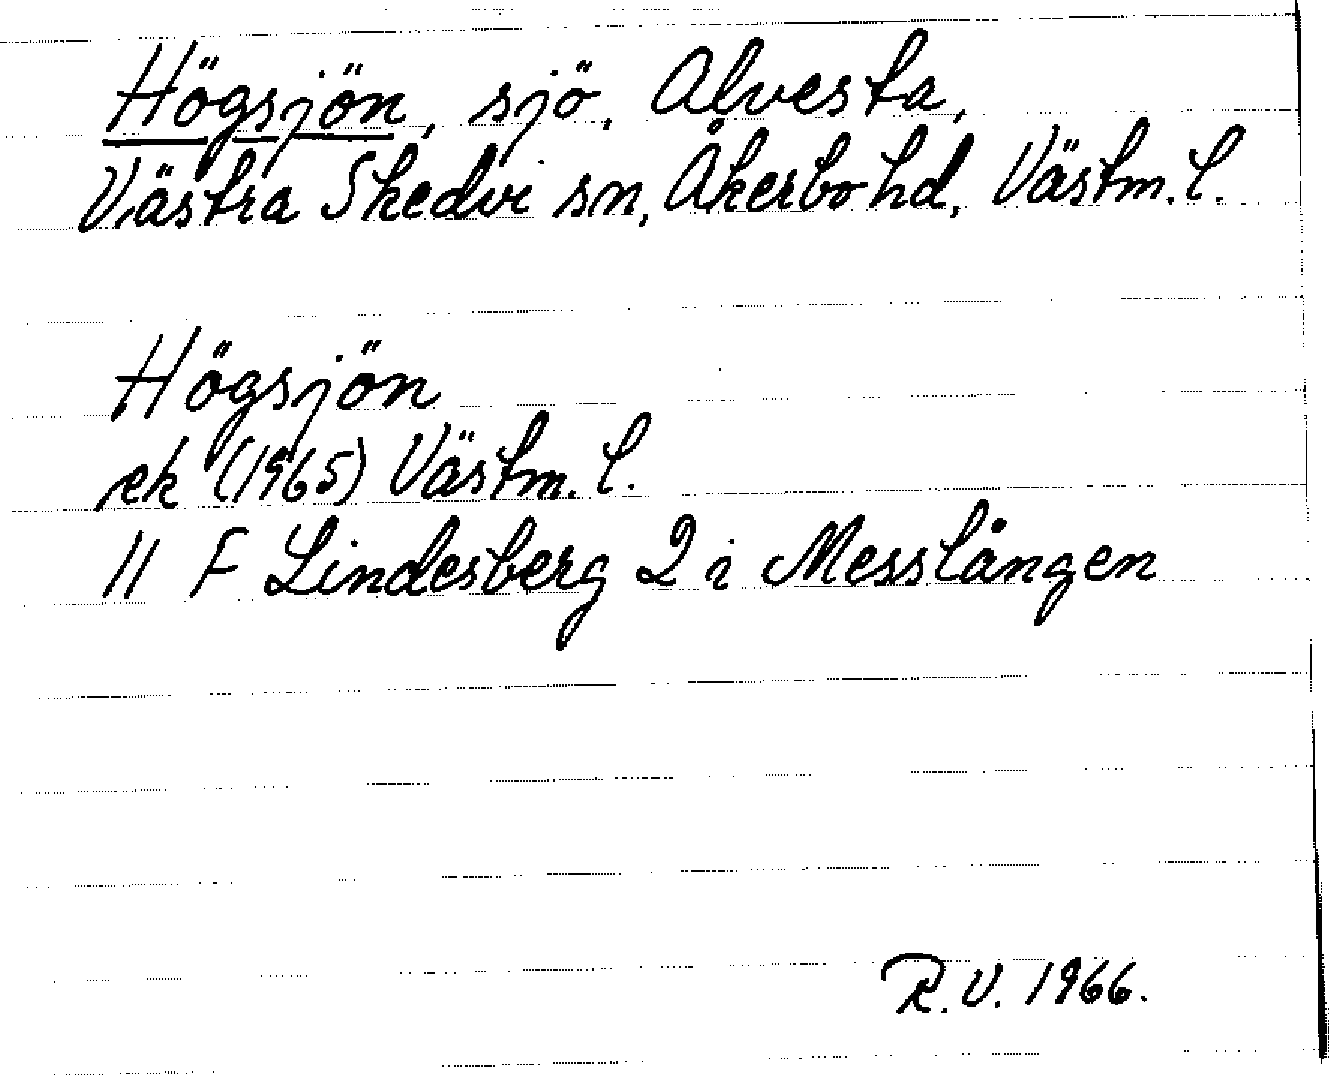 Högsjön, sjö, Alvesta,
Västra Skedvi sn, Åkerbo hd, Västm. l.
Högsjön
ek (1965) Västm. l.
11 F Lindesberg 2 i Messlången
R.V. 1966.